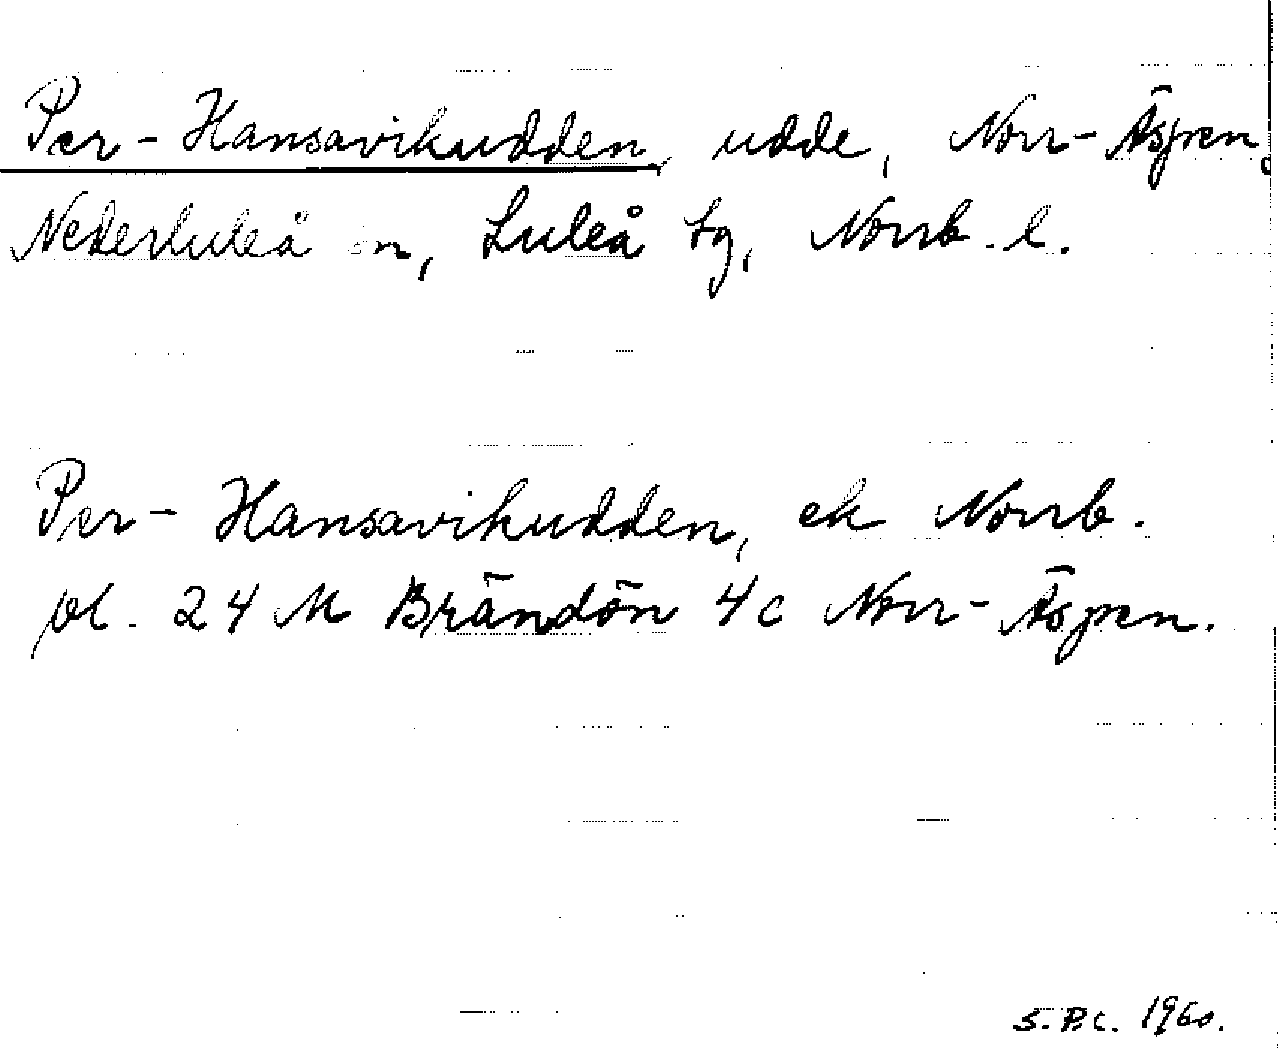 Per-Hansavikudden, udde, Norr-Äspen,
Nederluleå sn, Luleå tg, Norrb. l.
Per-Hansavikudden, ek Norrb.
bl. 24 M Brändön 4c Norr-Äspen.
S.B.C. 1960.